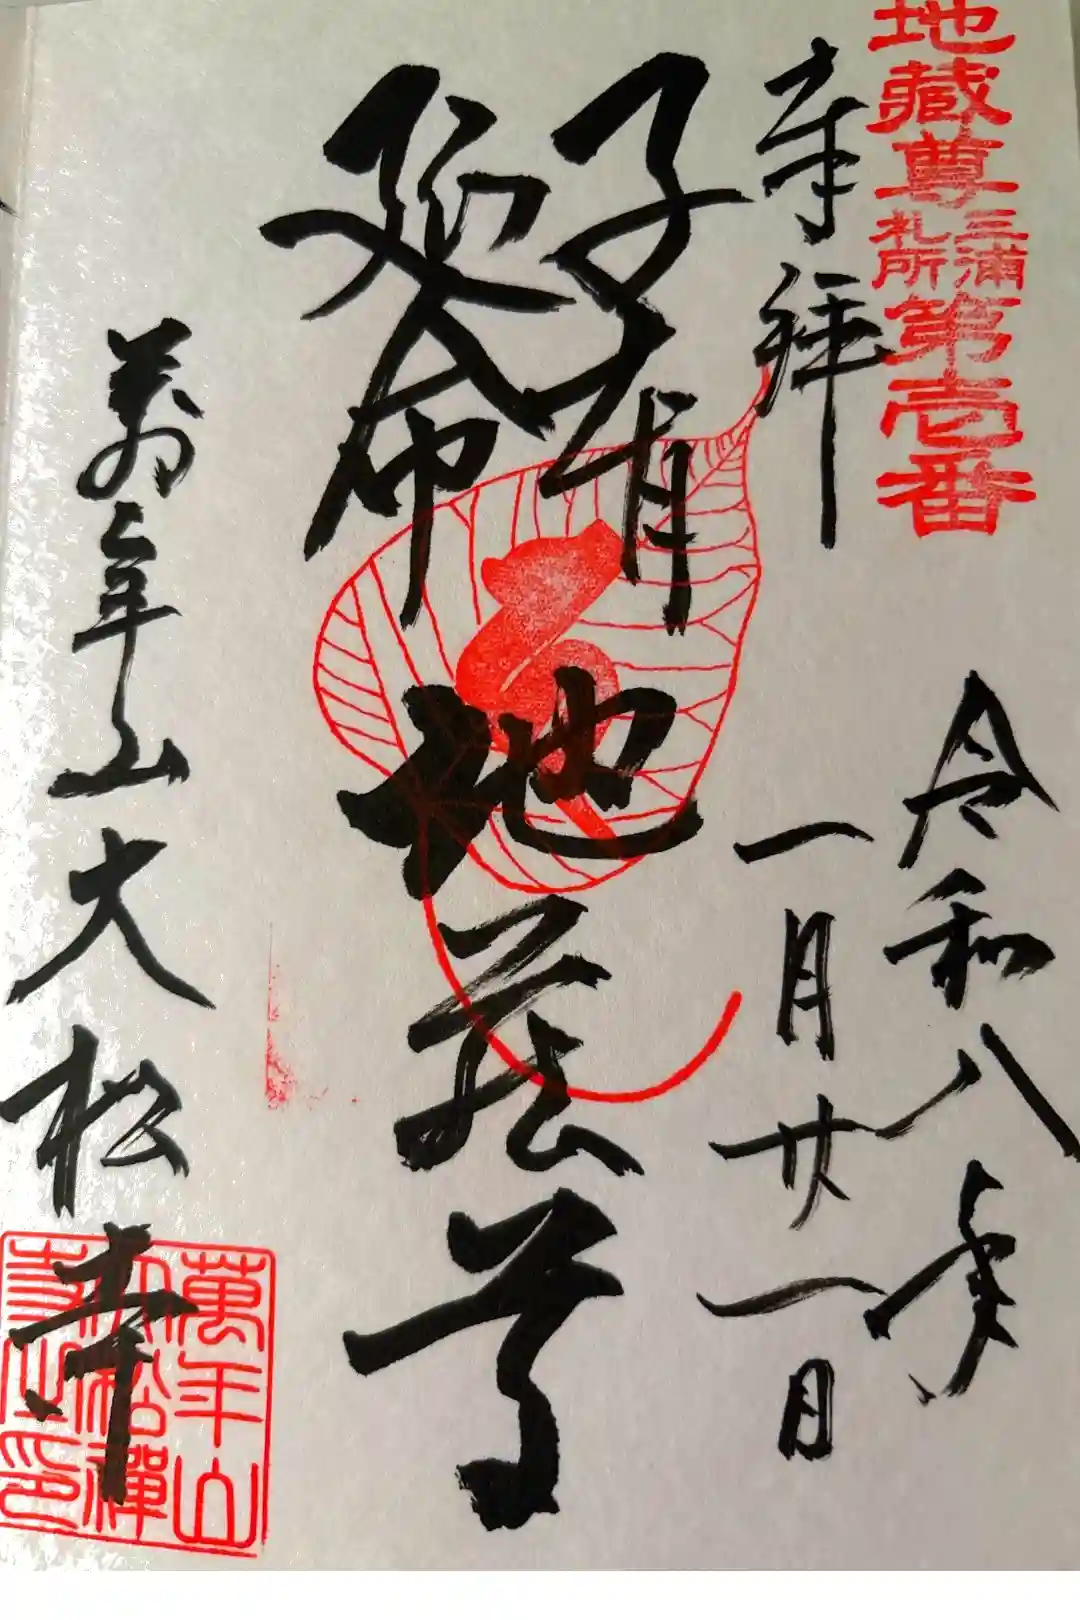 地蔵尊
三浦
札所
第壱番
奉拝
令和八年
一月廿一日
子育
延命
地蔵尊
萬年山大松寺
萬年山
大松禅
寺之印